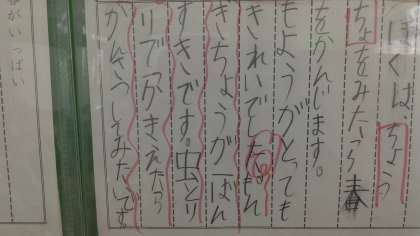 ぼくは、ちょう
ちょをみたら春
をかんじます。
もようがとっても
きれいでしたもん
きちょうが一ばん
すきです。虫とり
りでつかまえたら
みたいです。
がいっぱい